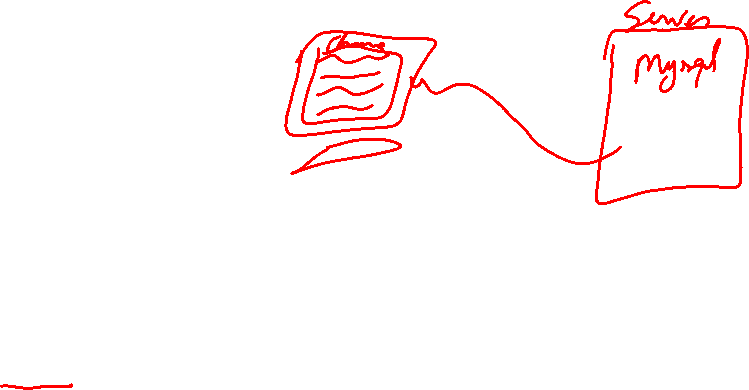 Chrome
Server
Mysql